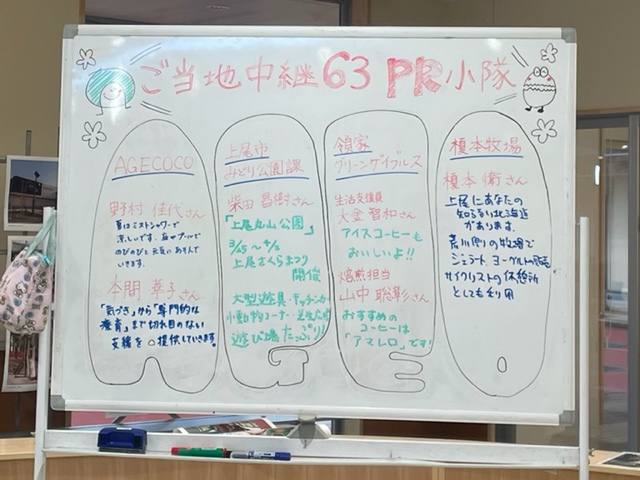 ご当地中継63 PR小隊
AGECOCO
野村 佳代さん
夏はミストシャワーで
涼しいです。
のびのびと元気にあそんで
いきます。
本間 華子さん
「気づき」から「専門的な
療育」まで切れ目のない
支援を提供していきます。
上尾市
みどり公園課
柴田 昌樹さん
「上尾丸山公園」
上尾さくらまつり
開催
大型遊具・キッチンカー
小動物コーナー
遊び場たっぷり!
領家
グリーンゲイブルス
生活支援員
大金 智和さん
アイスコーヒーも
おいしいよ!!
焙煎担当
山中 聡彰さん
おすすめの
コーヒーは
「アマレロ」です!
榎本牧場
榎本 衛さん
上尾にあなたの
知らない北海道
があります。
荒川周りの牧場で
ジェラート ヨーグルトの
サイクリストの休憩所
としても利用